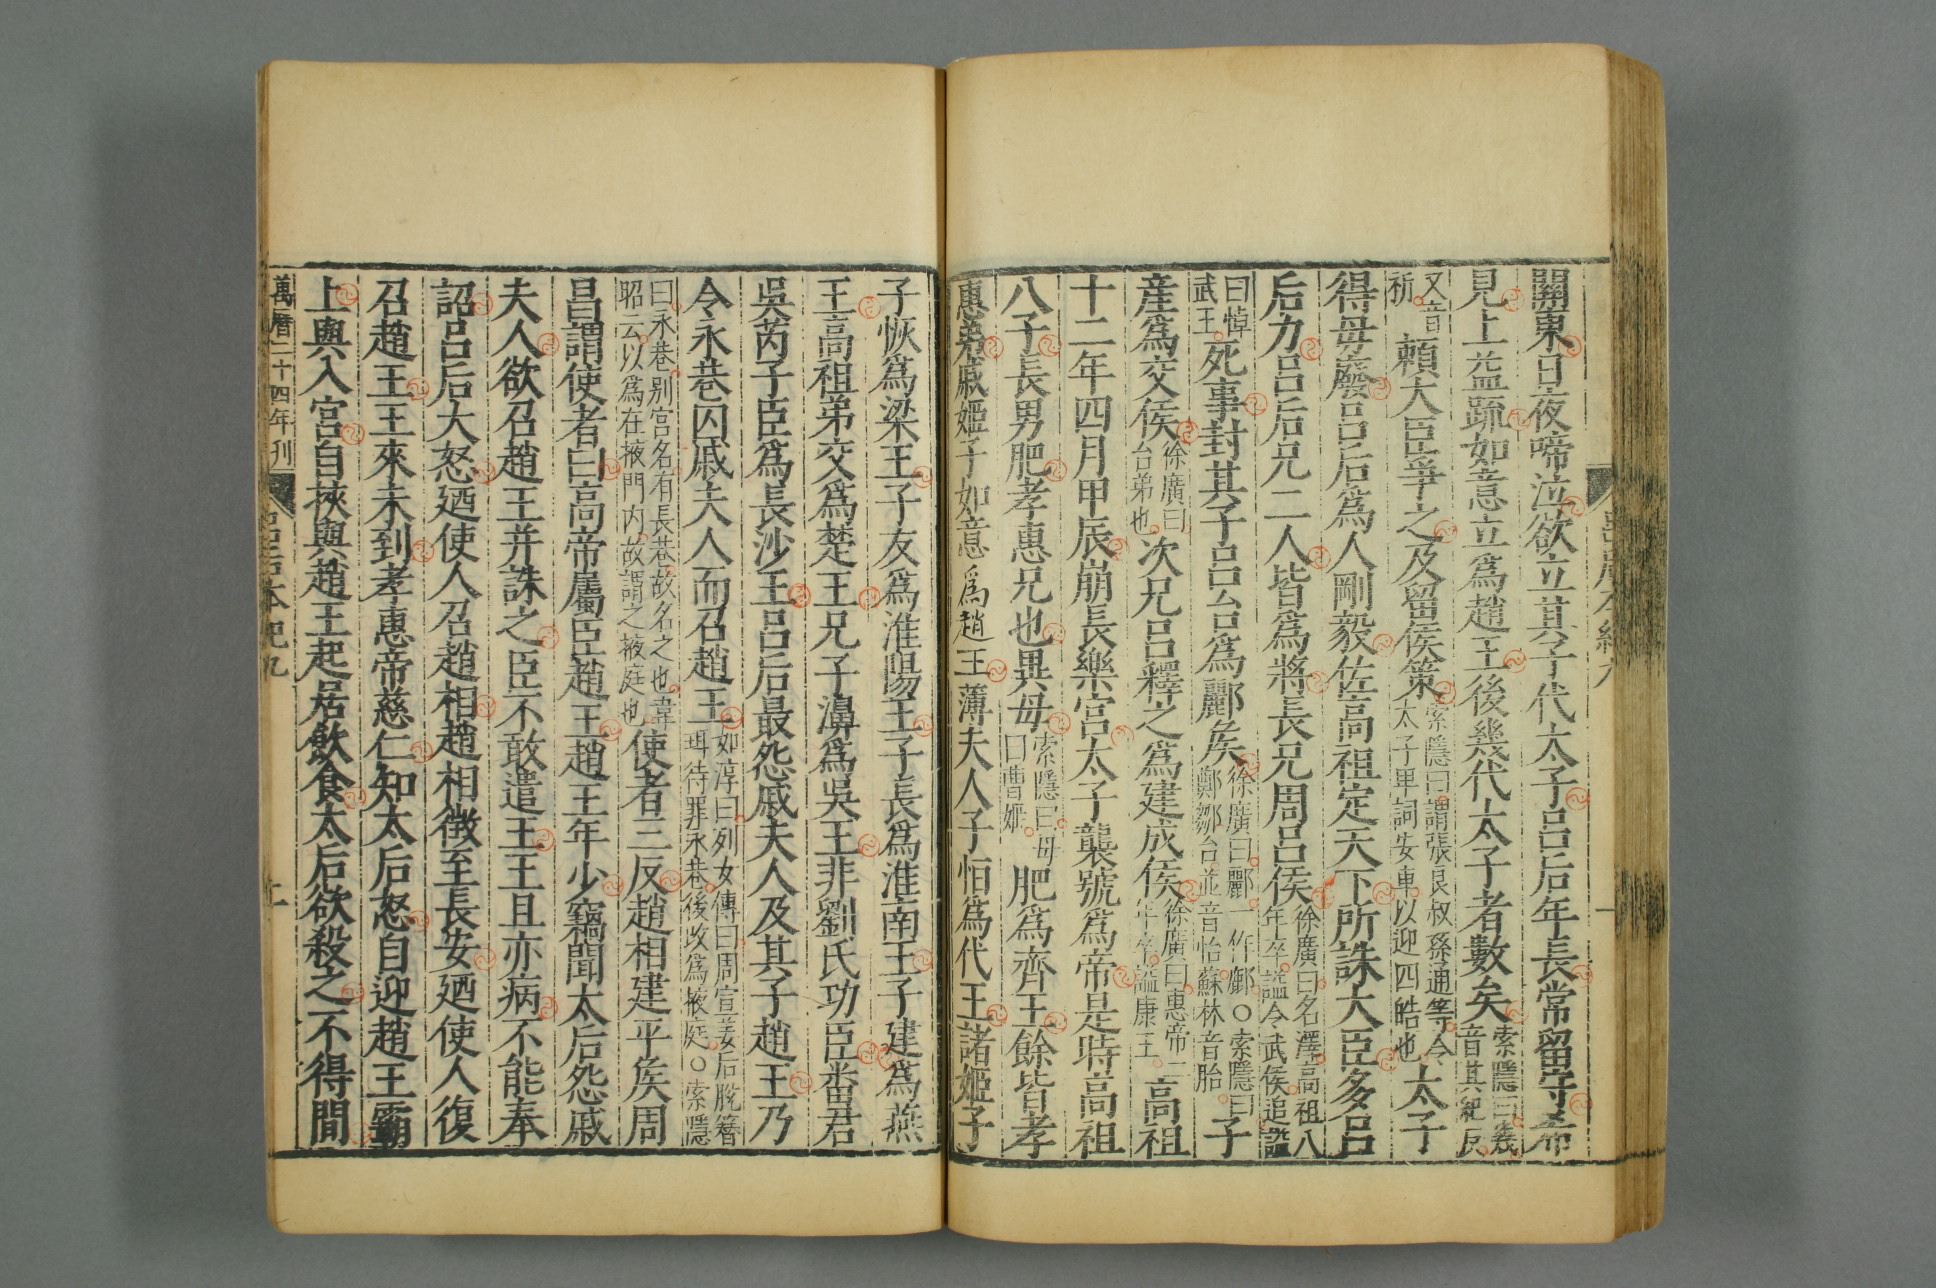 關東日夜啼泣欲立其子代太子呂后年長常留守希
見上益疏如意立爲趙王後幾代太子者數矣索隱曰幾音其紀反
又音祈賴大臣爭之及留侯策索隱曰謂張良叔孫通等令太子卑詞安車以迎四皓也太子
得毋廢呂后爲人剛毅佐高祖定天下所誅大臣多呂
后力呂后兄二人皆爲將長兄周呂侯徐廣曰名澤高祖八年卒謚令武侯追謚
曰悼武王死事封其子呂台爲酈侯徐廣曰酈一作鄜○索隱曰鄭鄒台並音怡蘇林音胎子
産爲交侯徐廣曰台弟也次兄呂釋之爲建成侯徐廣曰惠帝二年卒謚康王高祖
十二年四月甲辰崩長樂宮太子襲號爲帝是時高祖
八子長男肥孝惠兄也異母索隱曰母曰曹姬肥爲齊王餘皆孝
惠弟戚姬子如意爲趙王薄夫人子恒爲代王諸姬子
子恢爲梁王子友爲淮陽王子長爲淮南王子建爲燕
王高祖弟交爲楚王兄子濞爲吳王非劉氏功臣番君
吳芮子臣爲長沙王呂后最怨戚夫人及其子趙王乃
令永巷囚戚夫人而召趙王如淳曰列女傳曰周宣姜后脫簪珥待罪永巷後改爲掖庭○索隱
曰永巷別宮名有長巷故名之也韋昭云以爲在掖門內故謂之掖庭也使者三反趙相建平侯周
昌謂使者曰高帝屬臣趙王趙王年少竊聞太后怨戚
夫人欲召趙王并誅之臣不敢遣王王且亦病不能奉
詔呂后大怒廼使人召趙相趙相徵至長安廼使人復
召趙王王來未到孝惠帝慈仁知太后怒自迎趙王霸
上與入宮自挾與趙王起居飲食太后欲殺之不得間
萬曆二十四年刊
呂后本紀九